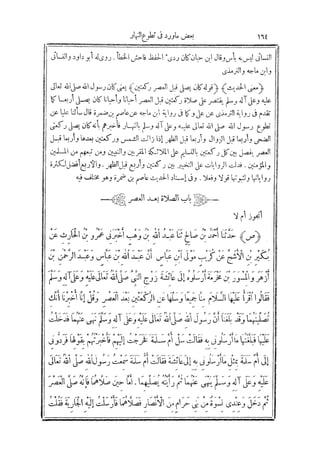 ١٦٤ بعض ماورد فى تطوع النهار
النسائى ليس به بأس وقال ابن حبان كان ردىء الحفظ فاحش الخطأ . روى له أبو داود والنسائى
وابن ماجه والترمذى
﴿معنى الحديث﴾ ﴿قوله كان يصلى قبل العصر ركعتين﴾ يعنى كان رسول الله صلى الله تعالى
عليه وعلى آله وسلم يقتصر على صلاة ركعتين قبل العصر أحيانا وأحيانا كان يصلى أربعا كما
تقدم فى رواية الترمذى عن على وكما فى رواية ابن ماجه عن عاصم بن ضمرة قال سألنا عليا عن
تطوع رسول الله صلى الله تعالى عليه وعلى آله وسلم بالنهار فأخبرهم بأنه كان يصلى ركعتى
الضحى وأربعا قبل الزوال وأربعا قبل الظهر إذا زالت الشمس وركعتين بعدها وأربعا قبل
العصر يفصل بين كل ركعتين بالتسليم على الملائكة المقربين والنبيين ومن تبعهم من المسلمين
والمؤمنين . فدلت الروايات على التخيير بين ركعتين وأربع قبل الظهر . والأربع أفضل لكثرة
رواياتها وثبوتها قولا وفعلا . وفى إسناد الحديث عاصم بن ضمرة وهو مختلف فيه
باب الصلاة بعد العصر
أتجوز أم لا
﴿ص﴾ حَدَّثَنَا أَحْمَدُ بْنُ صَالِحٍ ثَنَا عَبْدُ اللهِ بْنُ وَهْبٍ أَخْبَرَنِى عَمْرُو بْنُ الْحَارِثِ عَنْ
بُكَيْرِ بْنِ الْأَشَجِّ عَنْ كُرَيْبٍ مَوْلَى ابْنِ عَبَّاسٍ أَنَّ عَبْدَ اللهِ بْنَ عَبَّاسٍ وَعَبْدَ الرَّحْمٰنِ بْنَ
أَزْهَرَ وَالْمِسْوَرَ بْنَ مَخْرَمَةَ أَرْسَلُوهُ إِلَى عَائِشَةَ زَوْجِ النَّبِىِّ صَلَّى اللهُ تَعَالَى عَلَيْهِ وَعَلَى آلِهِ وَسَلَّمَ
فَقَالُوا اقْرَأْ عَلَيْهَا السَّلَامَ مِنَّا جَمِيعًا وَسَلْهَا عَنِ الرَّكْعَتَيْنِ بَعْدَ الْعَصْرِ وَقُلْ إِنَّا أُخْبِرْنَا أَنَّكِ
تُصَلِّينَهُمَا وَقَدْ بَلَغَنَا أَنَّ رَسُولَ اللهِ صَلَّى اللهُ تَعَالَى عَلَيْهِ وَعَلَى آلِهِ وَسَلَّمَ نَهَى عَنْهُمَا فَدَخَلْتُ
عَلَيْهَا فَبَلَّغْتُهَا مَا أَرْسَلُونِى بِهِ فَقَالَتْ سَلْ أُمَّ سَلَمَةَ فَخَرَجْتُ إِلَيْهِمْ فَأَخْبَرْتُهُمْ بِقَوْلِهَا فَرَدُّونِى
إِلَى أُمِّ سَلَمَةَ بِمِثْلِ مَا أَرْسَلُونِى بِهِ إِلَى عَائِشَةَ فَقَالَتْ أُمُّ سَلَمَةَ سَمِعْتُ رَسُولَ اللهِ صَلَّى اللهُ تَعَالَى
عَلَيْهِ وَعَلَى آلِهِ وَسَلَّمَ يَنْهَى عَنْهُمَا ثُمَّ رَأَيْتُهُ يُصَلِّيهِمَا . أَمَّا حِينَ صَلَّاهُمَا فَإِنَّهُ صَلَّى الْعَصْرَ
ثُمَّ دَخَلَ وَعِنْدِى نِسْوَةٌ مِنْ بَنِى حَرَامٍ مِنَ الْأَنْصَارِ فَصَلَّاهُمَا فَأَرْسَلْتُ إِلَيْهِ الْجَارِيَةَ فَقُلْتُ